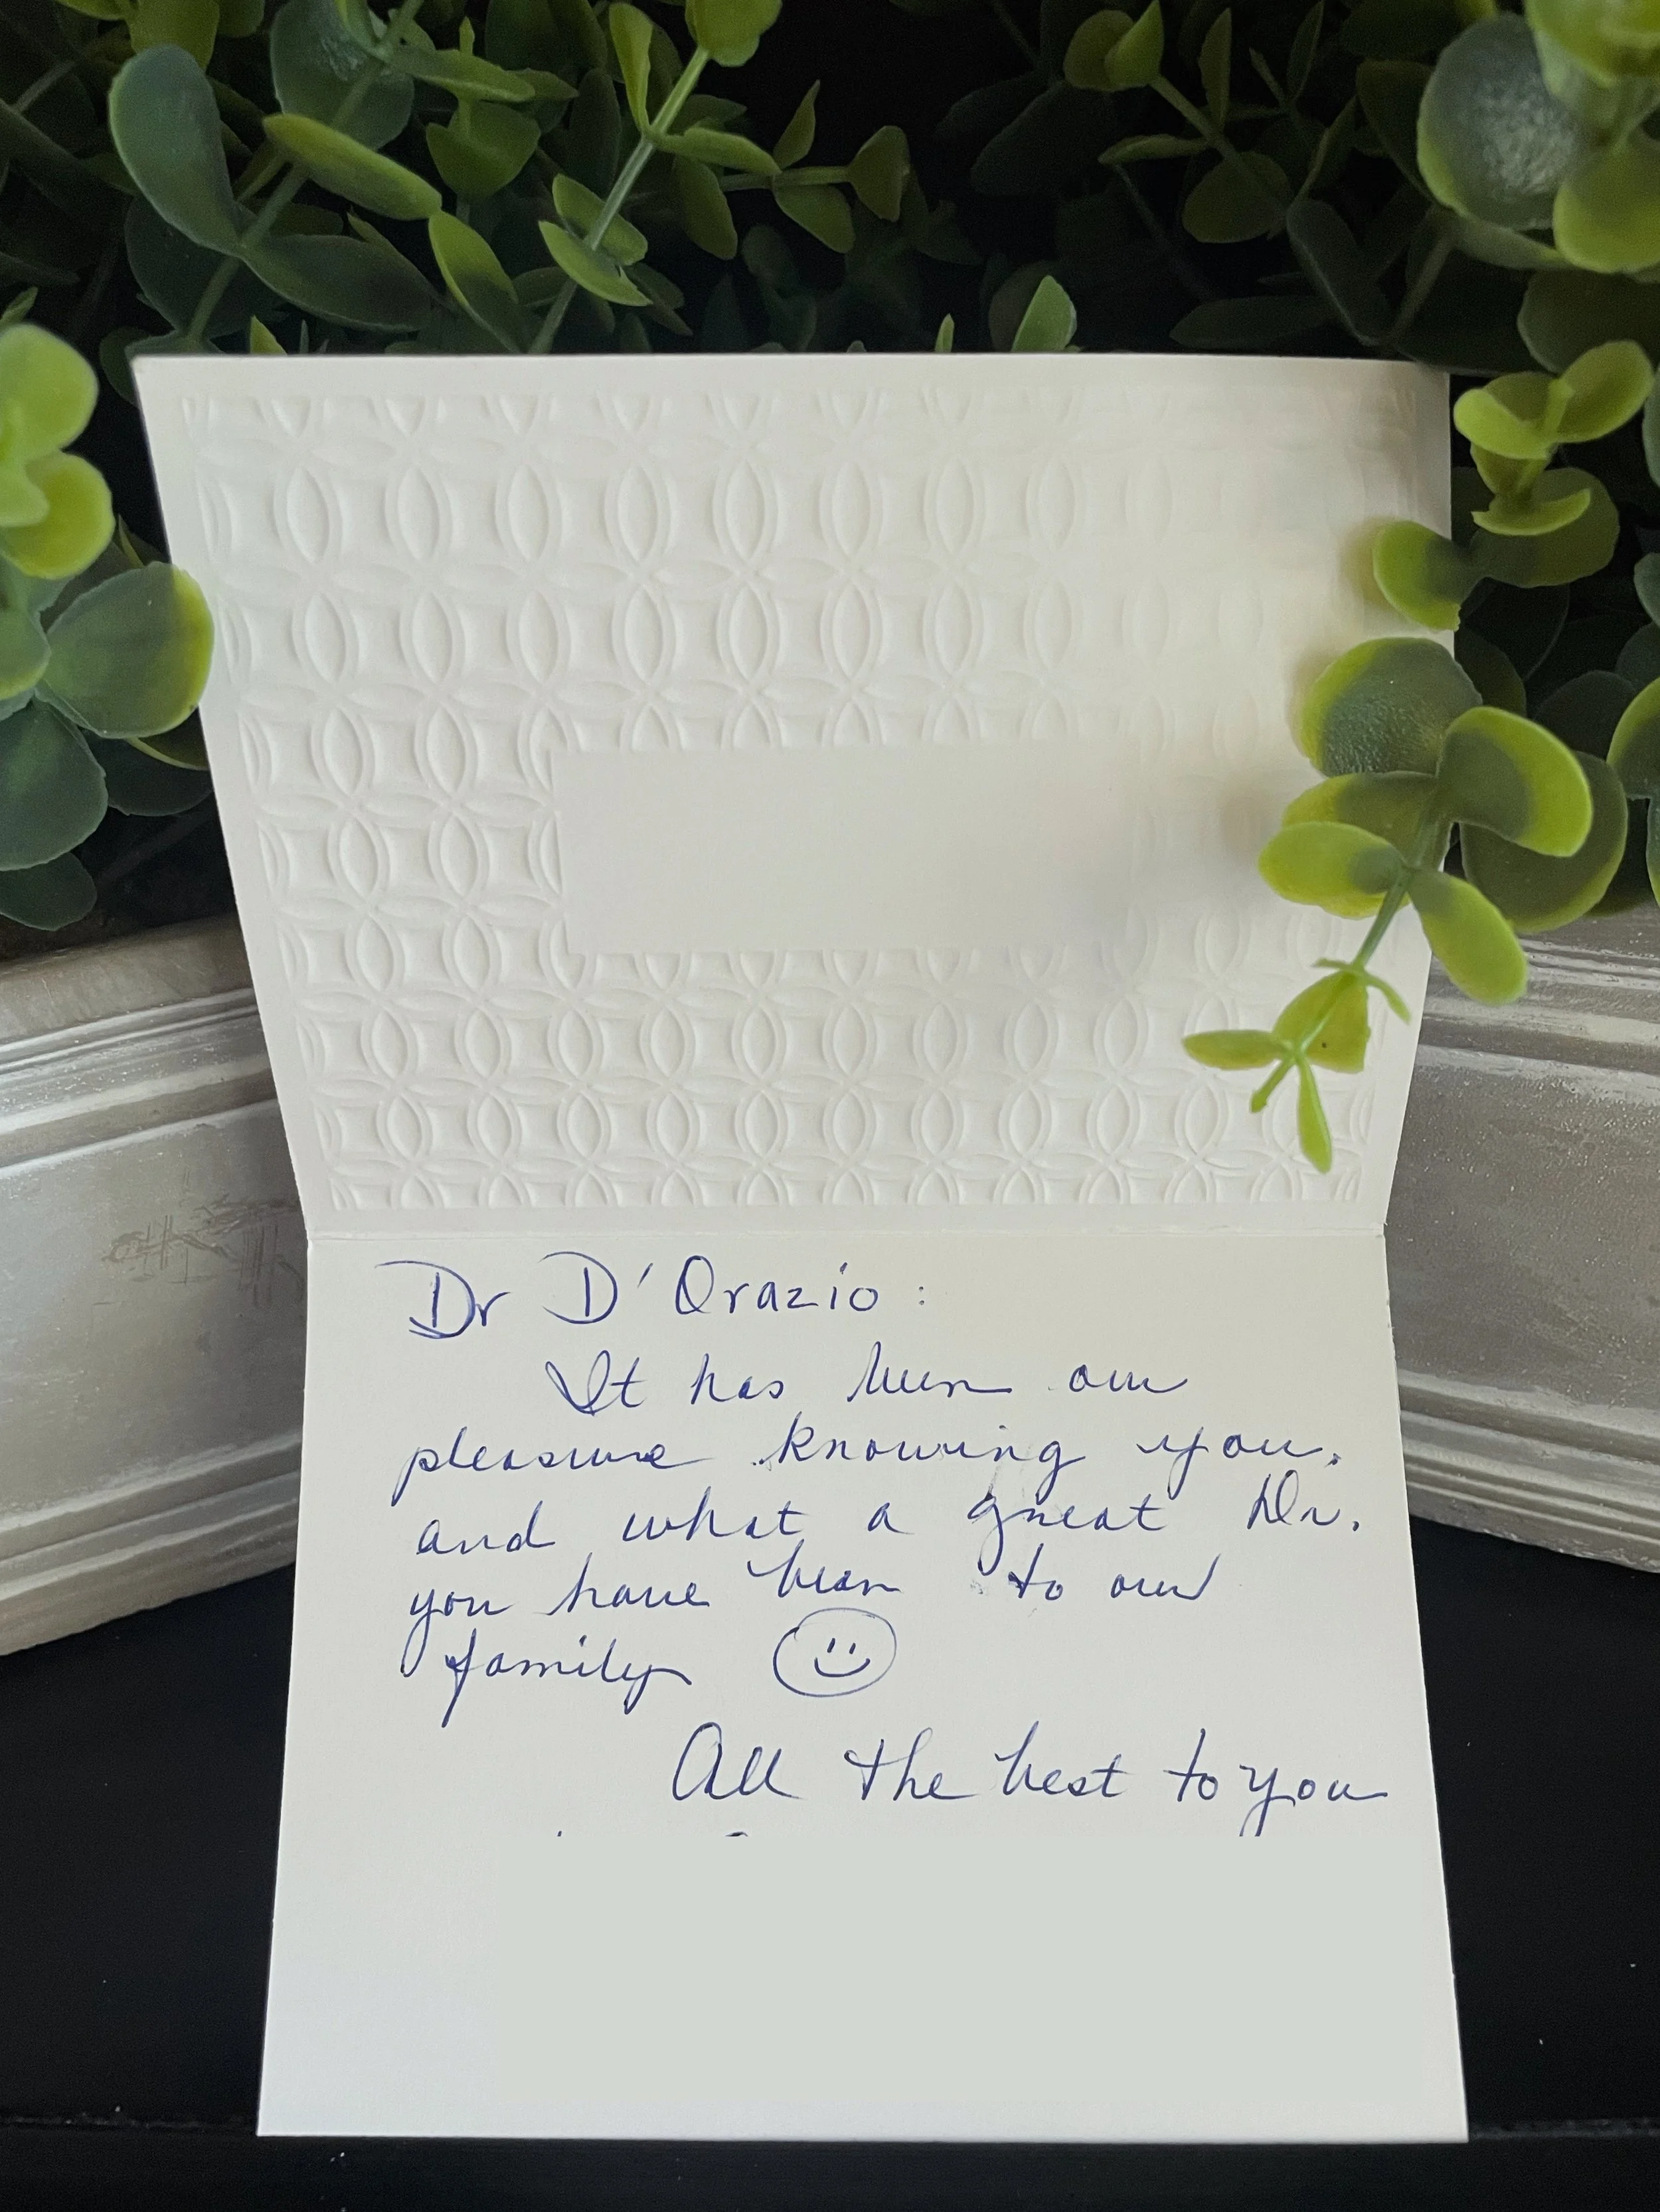 Dr D'Orazio:
It has been our
pleasure knowing you.
and what a great Dr.
you have been to our
family
All the best to you